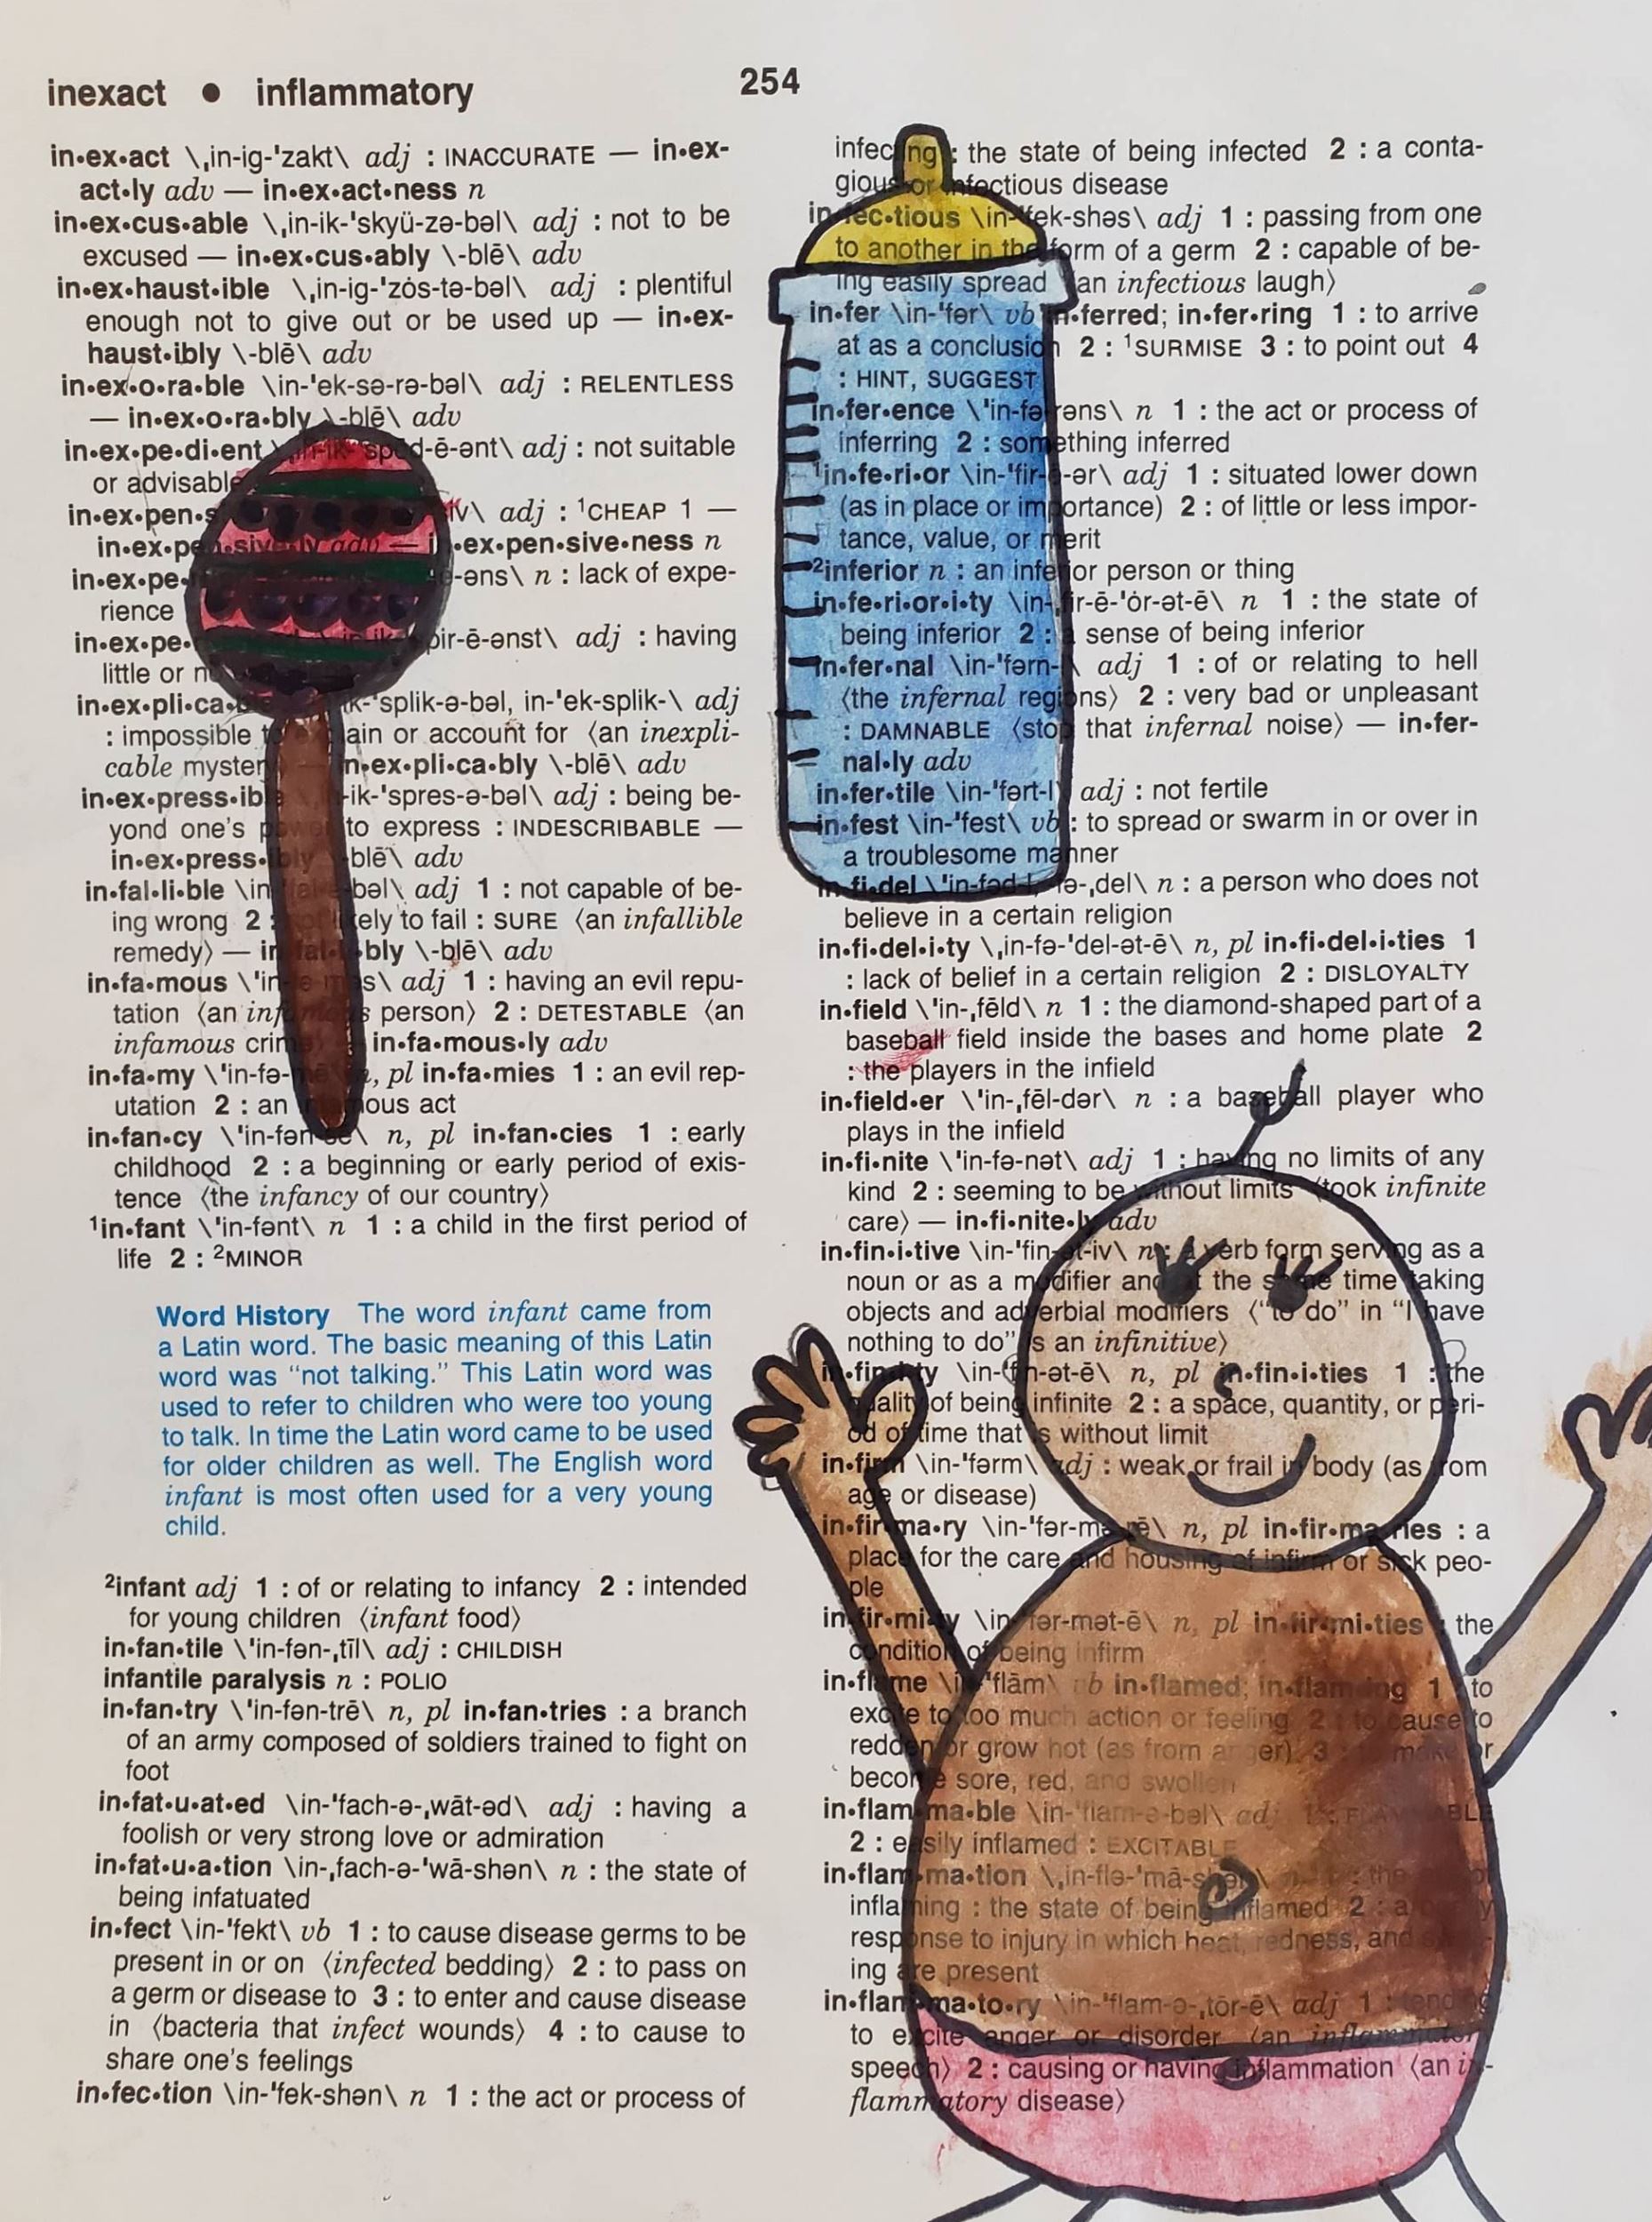 inexact • inflammatory
254
in•ex•act \ˌin-ig-ˈzakt\ adj : INACCURATE — in•ex-
act•ly adv — in•ex•act•ness n
in•ex•cus•able \ˌin-ik-ˈskyü-zə-bəl\ adj : not to be
excused — in•ex•cus•ably \-blē\ adv
in•ex•haust•ible \ˌin-ig-ˈzȯs-tə-bəl\ adj : plentiful
enough not to give out or be used up — in•ex-
haust•ibly \-blē\ adv
in•ex•o•ra•ble \in-ˈek-sə-rə-bəl\ adj : RELENTLESS
— in•ex•o•ra•bly \-blē\ adv
in•ex•pe•di•ent \ˌin-ik-ˈspēd-ē-ənt\ adj : not suitable
or advisable
adj : ¹CHEAP 1 —
in•ex•pen•sive•ly adv — in•ex•pen•sive•ness n
n : lack of expe-
rience
adj : having
little or
\ˌin-ik-ˈsplik-ə-bəl, in-ˈek-splik-\ adj
: impossible to explain or account for ⟨an inexpli-
cable mystery⟩ — in•ex•pli•ca•bly \-blē\ adv
in•ex•press•ible \ˌin-ik-ˈspres-ə-bəl\ adj : being be-
yond one's power to express : INDESCRIBABLE —
in•ex•press•ibly \-blē\ adv
in•fal•li•ble \in-ˈfal-ə-bəl\ adj 1 : not capable of be-
ing wrong 2 : not likely to fail : SURE ⟨an infallible
remedy⟩ — in•fal•li•bly \-blē\ adv
in•fa•mous \ˈin-fə-məs\ adj 1 : having an evil repu-
tation ⟨an infamous person⟩ 2 : DETESTABLE ⟨an
infamous crime⟩ — in•fa•mous•ly adv
in•fa•my \ˈin-fə-mē\ n, pl in•fa•mies 1 : an evil rep-
utation 2 : an infamous act
in•fan•cy \ˈin-fən-sē\ n, pl in•fan•cies 1 : early
childhood 2 : a beginning or early period of exis-
tence ⟨the infancy of our country⟩
¹in•fant \ˈin-fənt\ n 1 : a child in the first period of
life 2 : ²MINOR
Word History The word infant came from
a Latin word. The basic meaning of this Latin
word was “not talking.” This Latin word was
used to refer to children who were too young
to talk. In time the Latin word came to be used
for older children as well. The English word
infant is most often used for a very young
child.
²infant adj 1 : of or relating to infancy 2 : intended
for young children ⟨infant food⟩
in•fan•tile \ˈin-fən-ˌtīl\ adj : CHILDISH
infantile paralysis n : POLIO
in•fan•try \ˈin-fən-trē\ n, pl in•fan•tries : a branch
of an army composed of soldiers trained to fight on
foot
in•fat•u•at•ed \in-ˈfach-ə-ˌwāt-əd\ adj : having a
foolish or very strong love or admiration
in•fat•u•a•tion \in-ˌfach-ə-ˈwā-shən\ n : the state of
being infatuated
in•fect \in-ˈfekt\ vb 1 : to cause disease germs to be
present in or on ⟨infected bedding⟩ 2 : to pass on
a germ or disease to 3 : to enter and cause disease
in ⟨bacteria that infect wounds⟩ 4 : to cause to
share one's feelings
in•fec•tion \in-ˈfek-shən\ n 1 : the act or process of
infecting : the state of being infected 2 : a conta-
gious or infectious disease
in•fec•tious \in-ˈfek-shəs\ adj 1 : passing from one
to another in the form of a germ 2 : capable of be-
ing easily spread ⟨an infectious laugh⟩
in•fer \in-ˈfər\ vb in•ferred; in•fer•ring 1 : to arrive
at as a conclusion 2 : ¹SURMISE 3 : to point out 4
: HINT, SUGGEST
in•fer•ence \ˈin-fə-rəns\ n 1 : the act or process of
inferring 2 : something inferred
¹in•fe•ri•or \in-ˈfir-ē-ər\ adj 1 : situated lower down
(as in place or importance) 2 : of little or less impor-
tance, value, or merit
²inferior n : an inferior person or thing
in•fe•ri•or•i•ty \in-ˌfir-ē-ˈȯr-ət-ē\ n 1 : the state of
being inferior 2 : a sense of being inferior
in•fer•nal \in-ˈfərn-l\ adj 1 : of or relating to hell
⟨the infernal regions⟩ 2 : very bad or unpleasant
: DAMNABLE ⟨stop that infernal noise⟩ — in•fer-
nal•ly adv
in•fer•tile \in-ˈfərt-l\ adj : not fertile
in•fest \in-ˈfest\ vb : to spread or swarm in or over in
a troublesome manner
in•fi•del \ˈin-fəd-l, -fə-ˌdel\ n : a person who does not
believe in a certain religion
in•fi•del•i•ty \ˌin-fə-ˈdel-ət-ē\ n, pl in•fi•del•i•ties 1
: lack of belief in a certain religion 2 : DISLOYALTY
in•field \ˈin-ˌfēld\ n 1 : the diamond-shaped part of a
baseball field inside the bases and home plate 2
: the players in the infield
in•field•er \ˈin-ˌfēl-dər\ n : a baseball player who
plays in the infield
in•fi•nite \ˈin-fə-nət\ adj 1 : having no limits of any
kind 2 : seeming to be without limits ⟨took infinite
care⟩ — in•fi•nite•ly adv
in•fin•i•tive \in-ˈfin-ət-iv\ n : a verb form serving as a
noun or as a modifier and at the same time taking
objects and adverbial modifiers ⟨“to do” in “I have
nothing to do” is an infinitive⟩
in•fin•i•ty \in-ˈfin-ət-ē\ n, pl in•fin•i•ties 1 : the
quality of being infinite 2 : a space, quantity, or peri-
od of time that is without limit
in•firm \in-ˈfərm\ adj : weak or frail in body (as from
age or disease)
in•fir•ma•ry \in-ˈfər-mə-rē\ n, pl in•fir•ma•ries : a
place for the care and housing of infirm or sick peo-
ple
in•fir•mi•ty \in-ˈfər-mət-ē\ n, pl in•fir•mi•ties : the
condition of being infirm
in•flame \in-ˈflām\ vb in•flamed; in•flam•ing 1 : to
excite to too much action or feeling 2 : to cause to
redden or grow hot (as from anger) 3 : to make or
become sore, red, and swollen
in•flam•ma•ble \in-ˈflam-ə-bəl\ adj 1 : FLAMMABLE
2 : easily inflamed : EXCITABLE
in•flam•ma•tion \ˌin-flə-ˈmā-shən\ n 1 : the
inflaming : the state of being inflamed 2 : a
response to injury in which heat, redness, and
ing are present
in•flam•ma•to•ry \in-ˈflam-ə-ˌtōr-ē\ adj 1 : tending
to excite anger or disorder ⟨an inflammatory
speech⟩ 2 : causing or having inflammation ⟨an in-
flammatory disease⟩